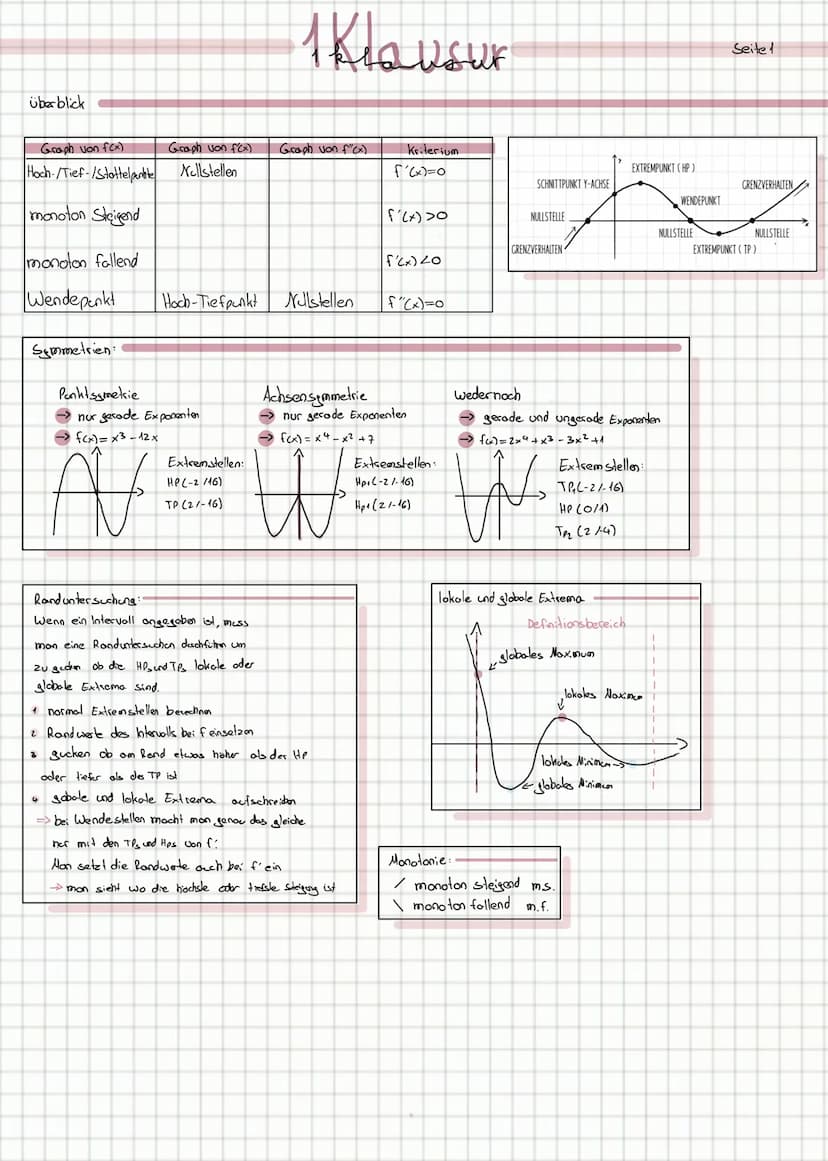 1Klausur
1 klausur
Seite 1
überblick
Graph von f(x) Graph von f'(x) Graph von f''(x) Kriterium
Hoch-/Tief-/Stattelpunkte Nullstellen f'(x)=0
monoton steigend f'(x)>0
monoton fallend f'(x)<0
Wendepunkt Hoch-Tiefpunkt Nullstellen f''(x)=0
EXTREMPUNKT (HP)
SCHNITTPUNKT Y-ACHSE
GRENZVERHALTEN
WENDEPUNKT
NULLSTELLE
NULLSTELLE
NULLSTELLE
GRENZVERHALTEN
EXTREMPUNKT (TP)
Symmetrien:
Punktssymetrie
→ nur gerade Exponenten
→ f(x) = x³ - 12x
Extremstellen:
HP (-2/16)
TP (2/-16)
Achsensymmetrie
→ nur gerade Exponenten
→ f(x) = x⁴ - x² + 7
Extremstellen:
Hp₁ (-2/-16)
Hp₁ (2/-16)
wedernoch
→ gerade und ungerade Exponenten
→ f(x) = 2x⁴ + x³ - 3x² + 1
Extremstellen:
TP₁ (-2/-16)
HP (0/1)
TP₂ (2/-4)
Randuntersuchung:
Wenn ein Intervall angegeben ist, muss
man eine Randuntersuchen durchführen um
zu gucken ob die HPs und TPs lokale oder
globale Extrema sind.
1 normal Extremstellen berechnen
2 Randwerte des Intervalls bei f einsetzen
3 gucken ob am Rand etwas höher als der HP
oder tiefer als der TP ist
4 gobale und lokale Extrema aufschreiben
⇒ bei Wendestellen macht man genau das gleiche
nur mit den TPs und Hps von f'
Man setzt die Randwerte auch bei f' ein
→ man sieht wo die höchste oder tiefste steigung ist
lokale und globale Extrema
Definitionsbereich
globales Maximum
lokales Maximum
lokales Minimum
globales Minimum
Monotonie:
/ monoton steigend m.s.
\ monoton fallend m.f.